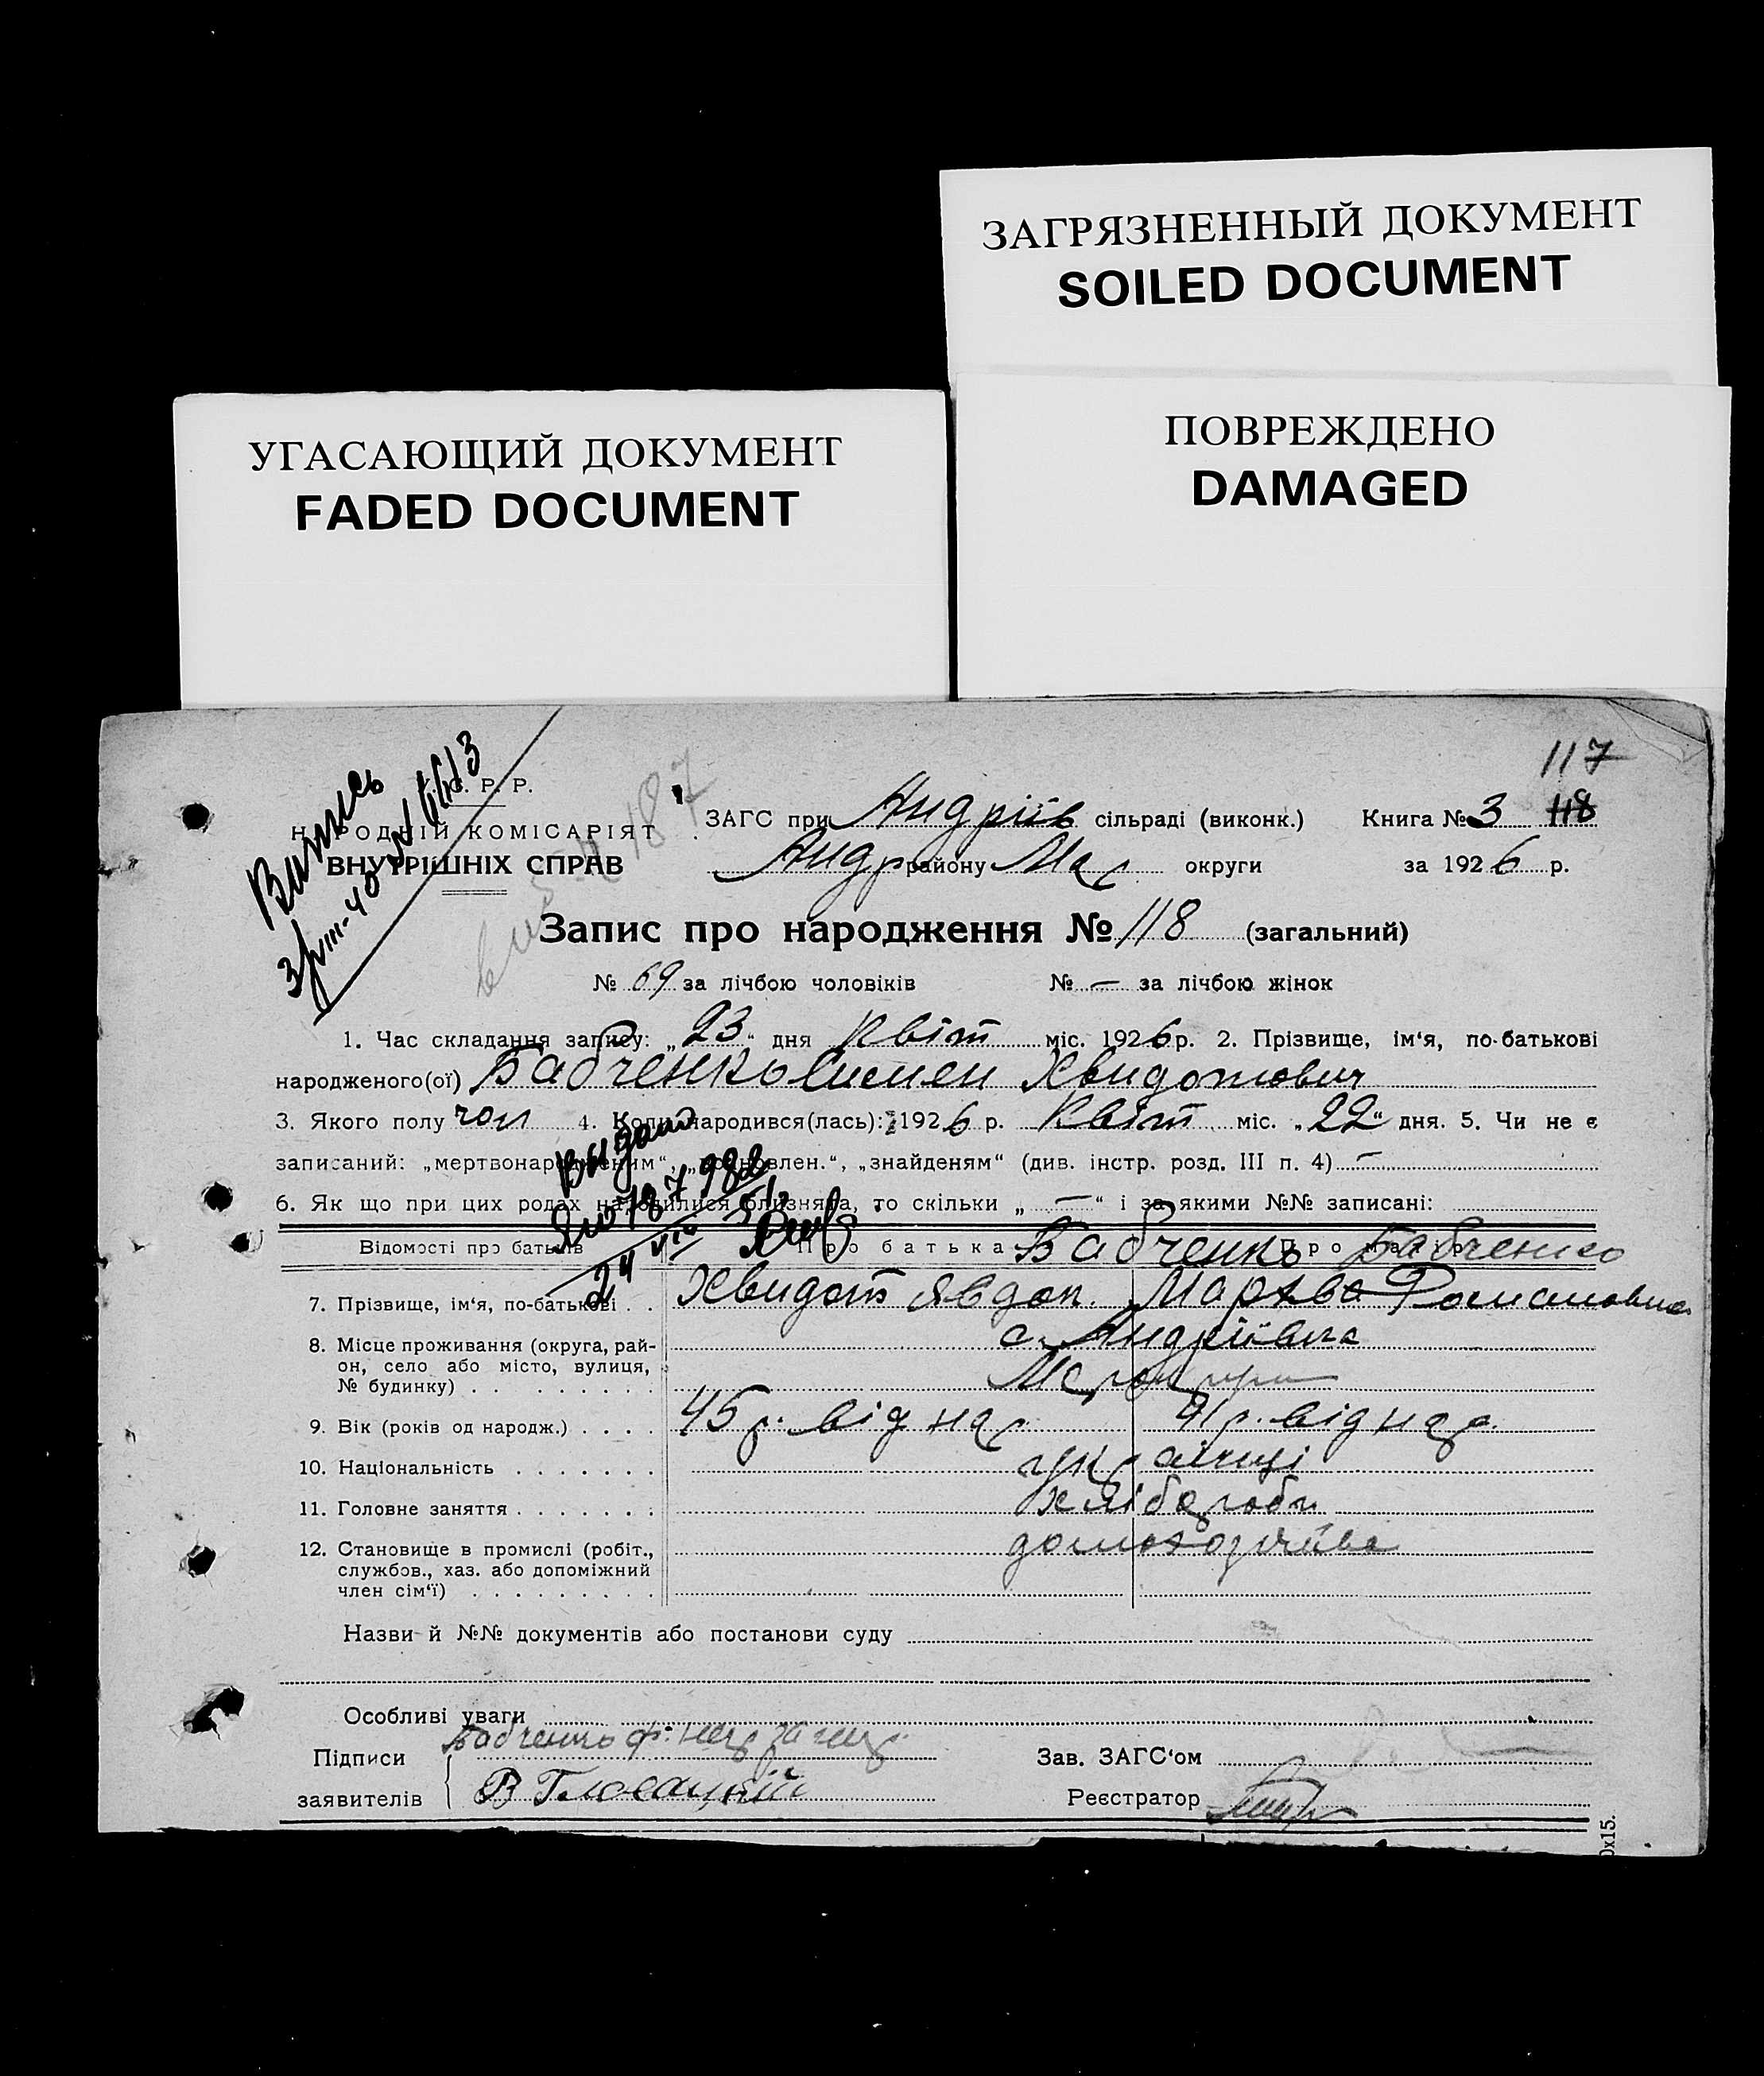 ЗАГРЯЗНЕННЫЙ ДОКУМЕНТ
SOILED DOCUMENT
УГАСАЮЩИЙ ДОКУМЕНТ
FADED DOCUMENT
ПОВРЕЖДЕНО
DAMAGED
117
Р. Р.
НАРОДНІЙ КОМІСАРІЯТ
ВНУТРІШНІХ СПРАВ
Випись
№ 6613
187
ЗАГС при Андріїв сільраді (виконк.) Книга № 3 118
Андр району Мар округи за 1926 р.
Запис про народження № 118 (загальний)
№ 69 за лічбою чоловіків № — за лічбою жінок
1. Час складання запису: „23“ дня Квіт міс. 1926 р. 2. Прізвище, ім‘я, по-батькові
народженого(ої) Бабченко Симен Хвидотович
3. Якого полу чол 4. Коли народився(лась): 1926 р. Квіт міс. „22“ дня. 5. Чи не є
записаний: „мертвонародженим“, „підновлен.“, „знайденям“ (див. інстр. розд. III п. 4) —
6. Як що при цих родах народилися близнята, то скільки „ — “ і за якими №№ записані:
Відомості про батьків Про батька Бабченко Про матір Бабченко
7. Прізвище, ім‘я, по-батькові . . Хвидот Явдок. Мархва Романовна
8. Місце проживання (округа, рай-
он, село або місто, вулиця,
№ будинку) . . . . . . . . .
с. Андріївка
9. Вік (років од народж.) . . . . 45 р. від нар 41 р. від нар.
10. Національність . . . . . . . українці
11. Головне заняття . . . . . . . хлібороби
12. Становище в промислі (робіт.,
службов., хаз. або допоміжний
член сім‘ї) . . . . . . . . .
домохозяїва
Назви й №№ документів або постанови суду
Особливі уваги
Підписи
заявителів
Бабченко Ф.
В Гловацкій
Зав. ЗАГС‘ом
Реєстратор
0х15.